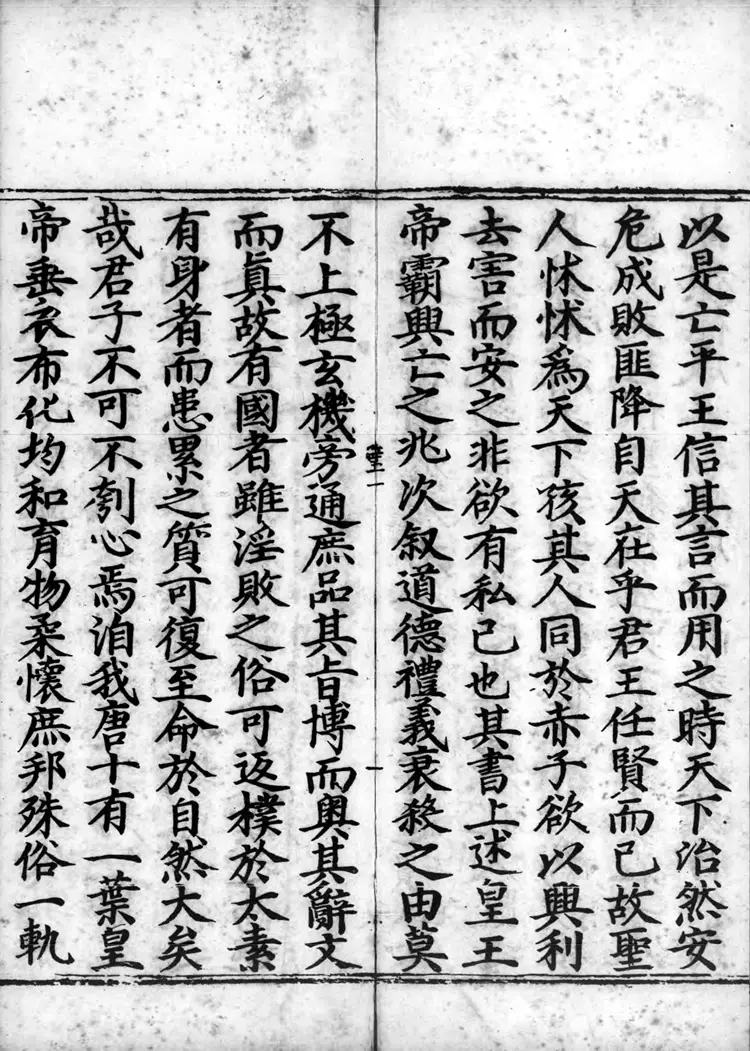 以是亡平王信其言而用之時天下治然安
危成敗匪降自天在乎君王任賢而已故聖
人怵怵為天下孩其人同於赤子欲以興利
去害而安之非欲有私己也其書上述皇王
帝霸興亡之兆次叙道德禮義衰殺之由莫
不上極玄機旁通庶品其旨博而奧其辭文
而眞故有國者雖淫敗之俗可返樸於太素
有身者而患累之質可復至命於自然大矣
哉君子不可不刳心焉洎我唐十有一葉皇
帝垂衣布化均和育物柔懷庶邦殊俗一軌